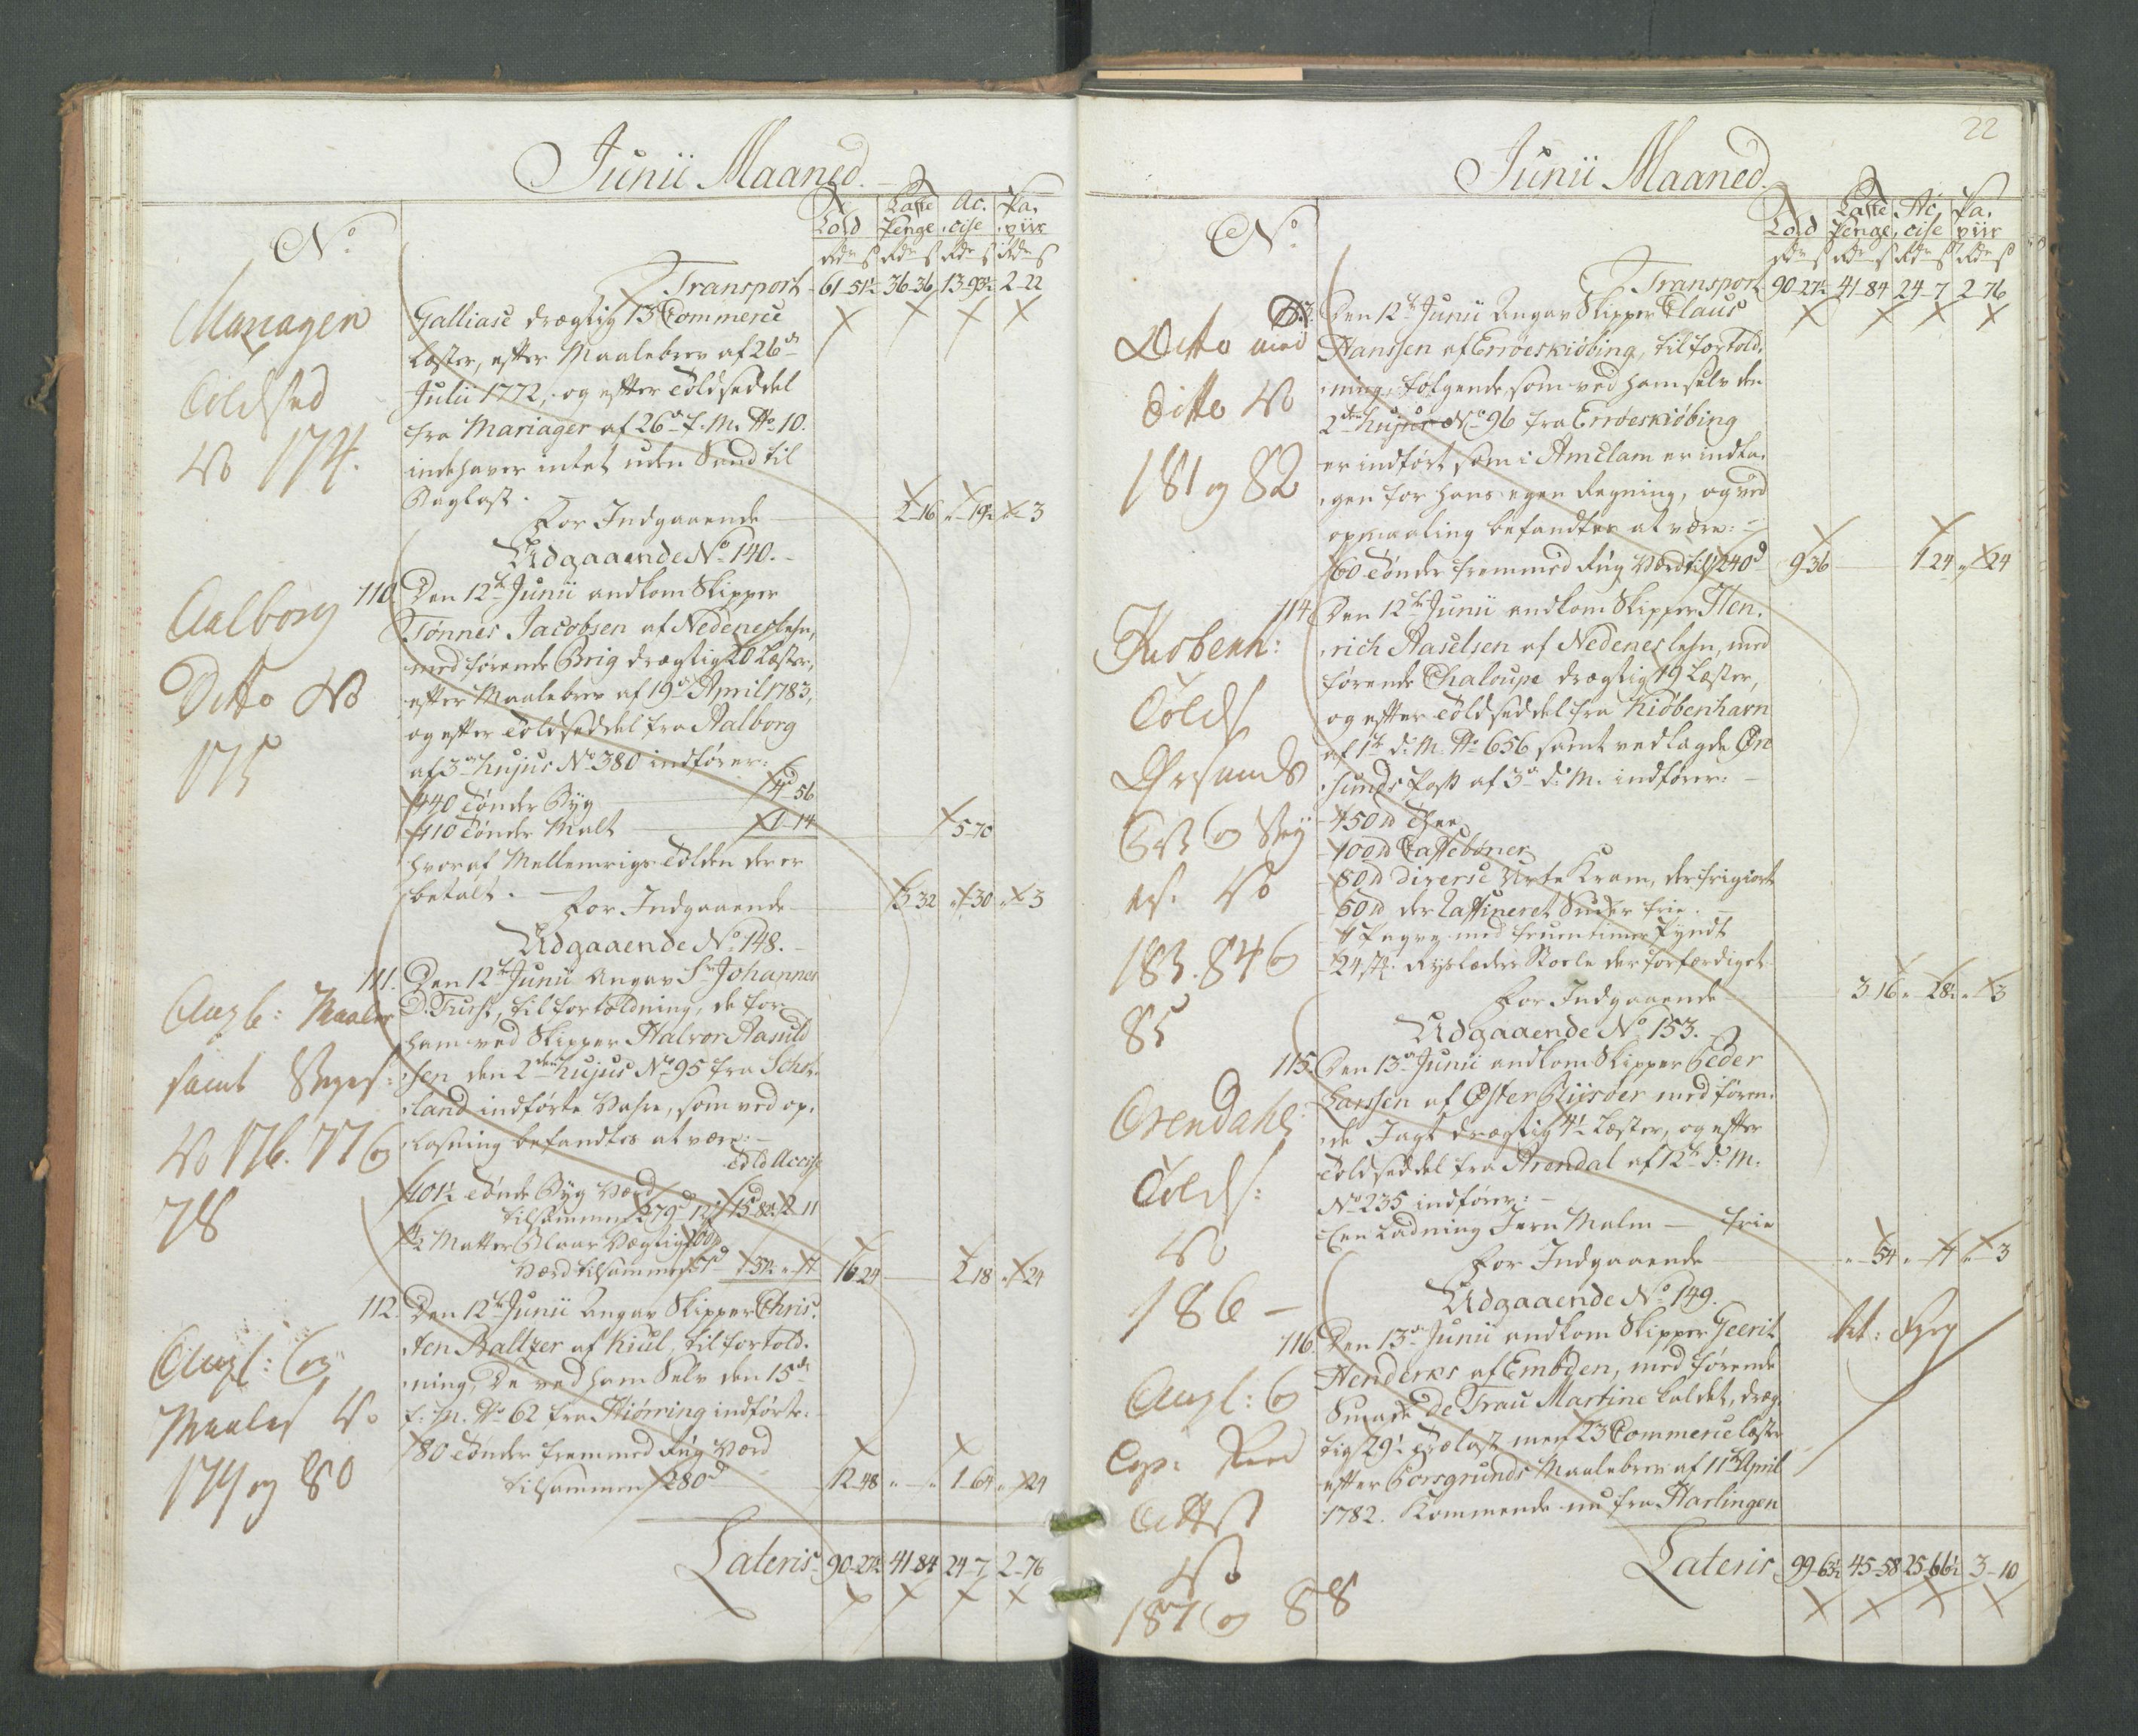 Junii Maaned.
No
Told Laste Penge Ac- cise Pa- piir
Rdr s Rdr s Rdr s Rdr s
Transport 61-51½ 36-36 13-93½ 2-22
Mariager
Toldsed
No 174.
Galliase drægtig 13 Commerce
Læster, efter Maalebrev af 26de
Julii 1772, og efter Toldseddel
fra Mariager af 26de f. M. No 10.
indehaver intet uden Sand til
Baglast.
For Indgaaende 2-16 „-19½ „-3
Udgaaende No 140.
Aalborg
Ditto No
175
110. Den 12te Junii ankom Skipper
Tønnes Jacobsen af Nedenes lehn,
medførende Brig drægtig 20 Læster,
efter Maalebrev af 19de April 1783,
og efter Toldseddel fra Aalborg
af 3de hujus No 380 indfører:
440 Tønder Byg 4-56
110 Tønder Malt 1-14 5-70
hvoraf Mellemrigs Tolden der er
betalt.
For Indgaaende 3-32 „-30 „-3
Udgaaende No 148.
Angb: Maaler
samt Vejers:
No 176. 77 og
78
111. Den 12te Junii Angav Sr Johannes
D. Furst, til fortoldning, de for
ham ved Skipper Halvor Aasuld
sen den 2den hujus No 95 fra Schot-
land indførte Vahre, som ved op-
losning befandtes at være:
Told Accise
101½ Tønde Byg Værd
tilsammen 279d 12s 15-80½ 2-11
2 Matter Blaar Vægtig
Værd tilsammen 16-24 2-18 „-24
Angl: og
Maales No
179 og 80
112. Den 12te Junii Angav Skipper Chris-
ten Baltzer af Kiul, til fortold-
ning, De ved ham Selv den 15de
f. M. No 62 fra Hiørring indførte:
80 Tønder fremmed Rug Værd
tilsammen 280d 12-48 „-„ 1-64 „-24
Lateris 90-27½ 41-84 24-7 2-76
22
Junii Maaned.
No
Told Laste Penge Ac- cise Pa- piir
Rdr s Rdr s Rdr s Rdr s
Transport 90-27½ 41-84 24-7 2-76
Ditto med
Ditto No
181 og 82
113. Den 12te Junii Angav Skipper Claus
Hanssen af Erroeskiøbing, til fortold-
ning, følgende, som ved ham selv den
2den hujus No 96 fra Erroeskiøbing
er indført, som i Amelam er indta-
gen for hans egen Regning, og ved
opmaaling befandtes at være:
60 Tønder fremmed Rug Værd til 240d 9-36 1-24 „-24
Kiobenh:
Tolds
Øresunds
Pst og Vej
ers. No
183. 84 og
85
114. Den 12te Junii ankom Skipper Hen-
rich Aaselsen af Nedenes lehn, med
førende Chaloupe drægtig 19 Læster,
og efter Toldseddel fra Kiøbenhavn
af 1te d. M. No 656 samt vedlagde Øre
sunds Pass af 3de d. M. indfører:
450 lb Thee
100 lb Caffebøner
80 lb diverse Urte Kram, der frigiort
50 lb der Raffineret Sucker frie.
1 Pagvg med fruentimer Pyndt
24 st. Ryslæders Stoele der forfærdiget
For Indgaaende 3-16 „-28½ „-3
Udgaaende No 153.
Arendahls
Tolds:
No
186 -
115. Den 13de Junii ankom Skipper Peder
Larssen af Øster Riisøer medføren-
de Jagt drægtig 4½ Læster, og efter
Toldseddel fra Arendal af 12te d. M.
No 235 indfører:
Een Ladning Jern Malm - frie
For Indgaaende „-54 „-4 „-3
Udgaaende No 149.
Angl: og
Cop: Reed
Attst
No
187 og 88
116. Den 13de Junii ankom Skipper Geerit
Henderks af Embden, med førende
Smack De Frau Martine kaldet, dræg-
tig 29½ Trælast men 23 Commerce læster
efter Porsgrunds Maalebrev af 11te April
1782. Kommende nu fra Harlingen
Lateris 99-63½ 45-58 25-66½ 3-10